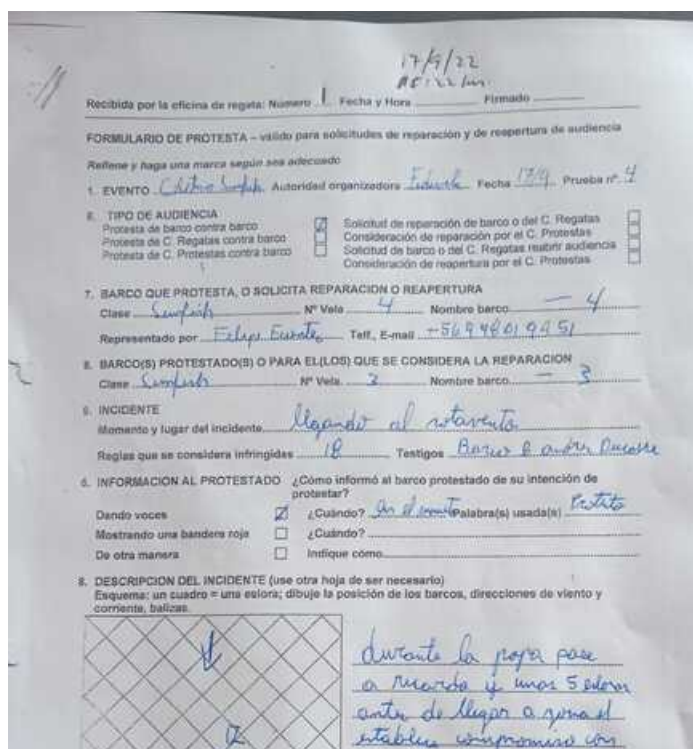 17/9/22
Recibida por la oficina de regata: Número 1 Fecha y Hora Firmado
FORMULARIO DE PROTESTA – válido para solicitudes de reparación y de reapertura de audiencia
Rellene y haga una marca según sea adecuado
1. EVENTO Autoridad organizadora Fecha 17/9 Prueba nº. 4
6. TIPO DE AUDIENCIA
Protesta de barco contra barco
Protesta de C. Regatas contra barco
Protesta de C. Protestas contra barco
Solicitud de reparación de barco o del C. Regatas
Consideración de reparación por el C. Protestas
Solicitud de barco o del C. Regatas reabrir audiencia
Consideración de reapertura por el C. Protestas
7. BARCO QUE PROTESTA, O SOLICITA REPARACION O REAPERTURA
Clase Sunfish Nº Vela 4 Nombre barco — 4
Representado por Felipe Telf., E-mail
8. BARCO(S) PROTESTADO(S) O PARA EL(LOS) QUE SE CONSIDERA LA REPARACION
Clase Sunfish Nº Vela 3 Nombre barco — 3
9. INCIDENTE
Momento y lugar del incidente llegando al sotavento
Reglas que se considera infringidas 18 Testigos
6. INFORMACION AL PROTESTADO ¿Cómo informó al barco protestado de su intención de
protestar?
Dando voces ¿Cuándo? Palabra(s) usada(s)
Mostrando una bandera roja ¿Cuándo?
De otra manera Indique cómo
8. DESCRIPCION DEL INCIDENTE (use otra hoja de ser necesario)
Esquema: un cuadro = una eslora; dibuje la posición de los barcos, direcciones de viento y
corriente, balizas.
durante la popa pase
a ricardo y unas 5
antes de llegar a
compromiso con